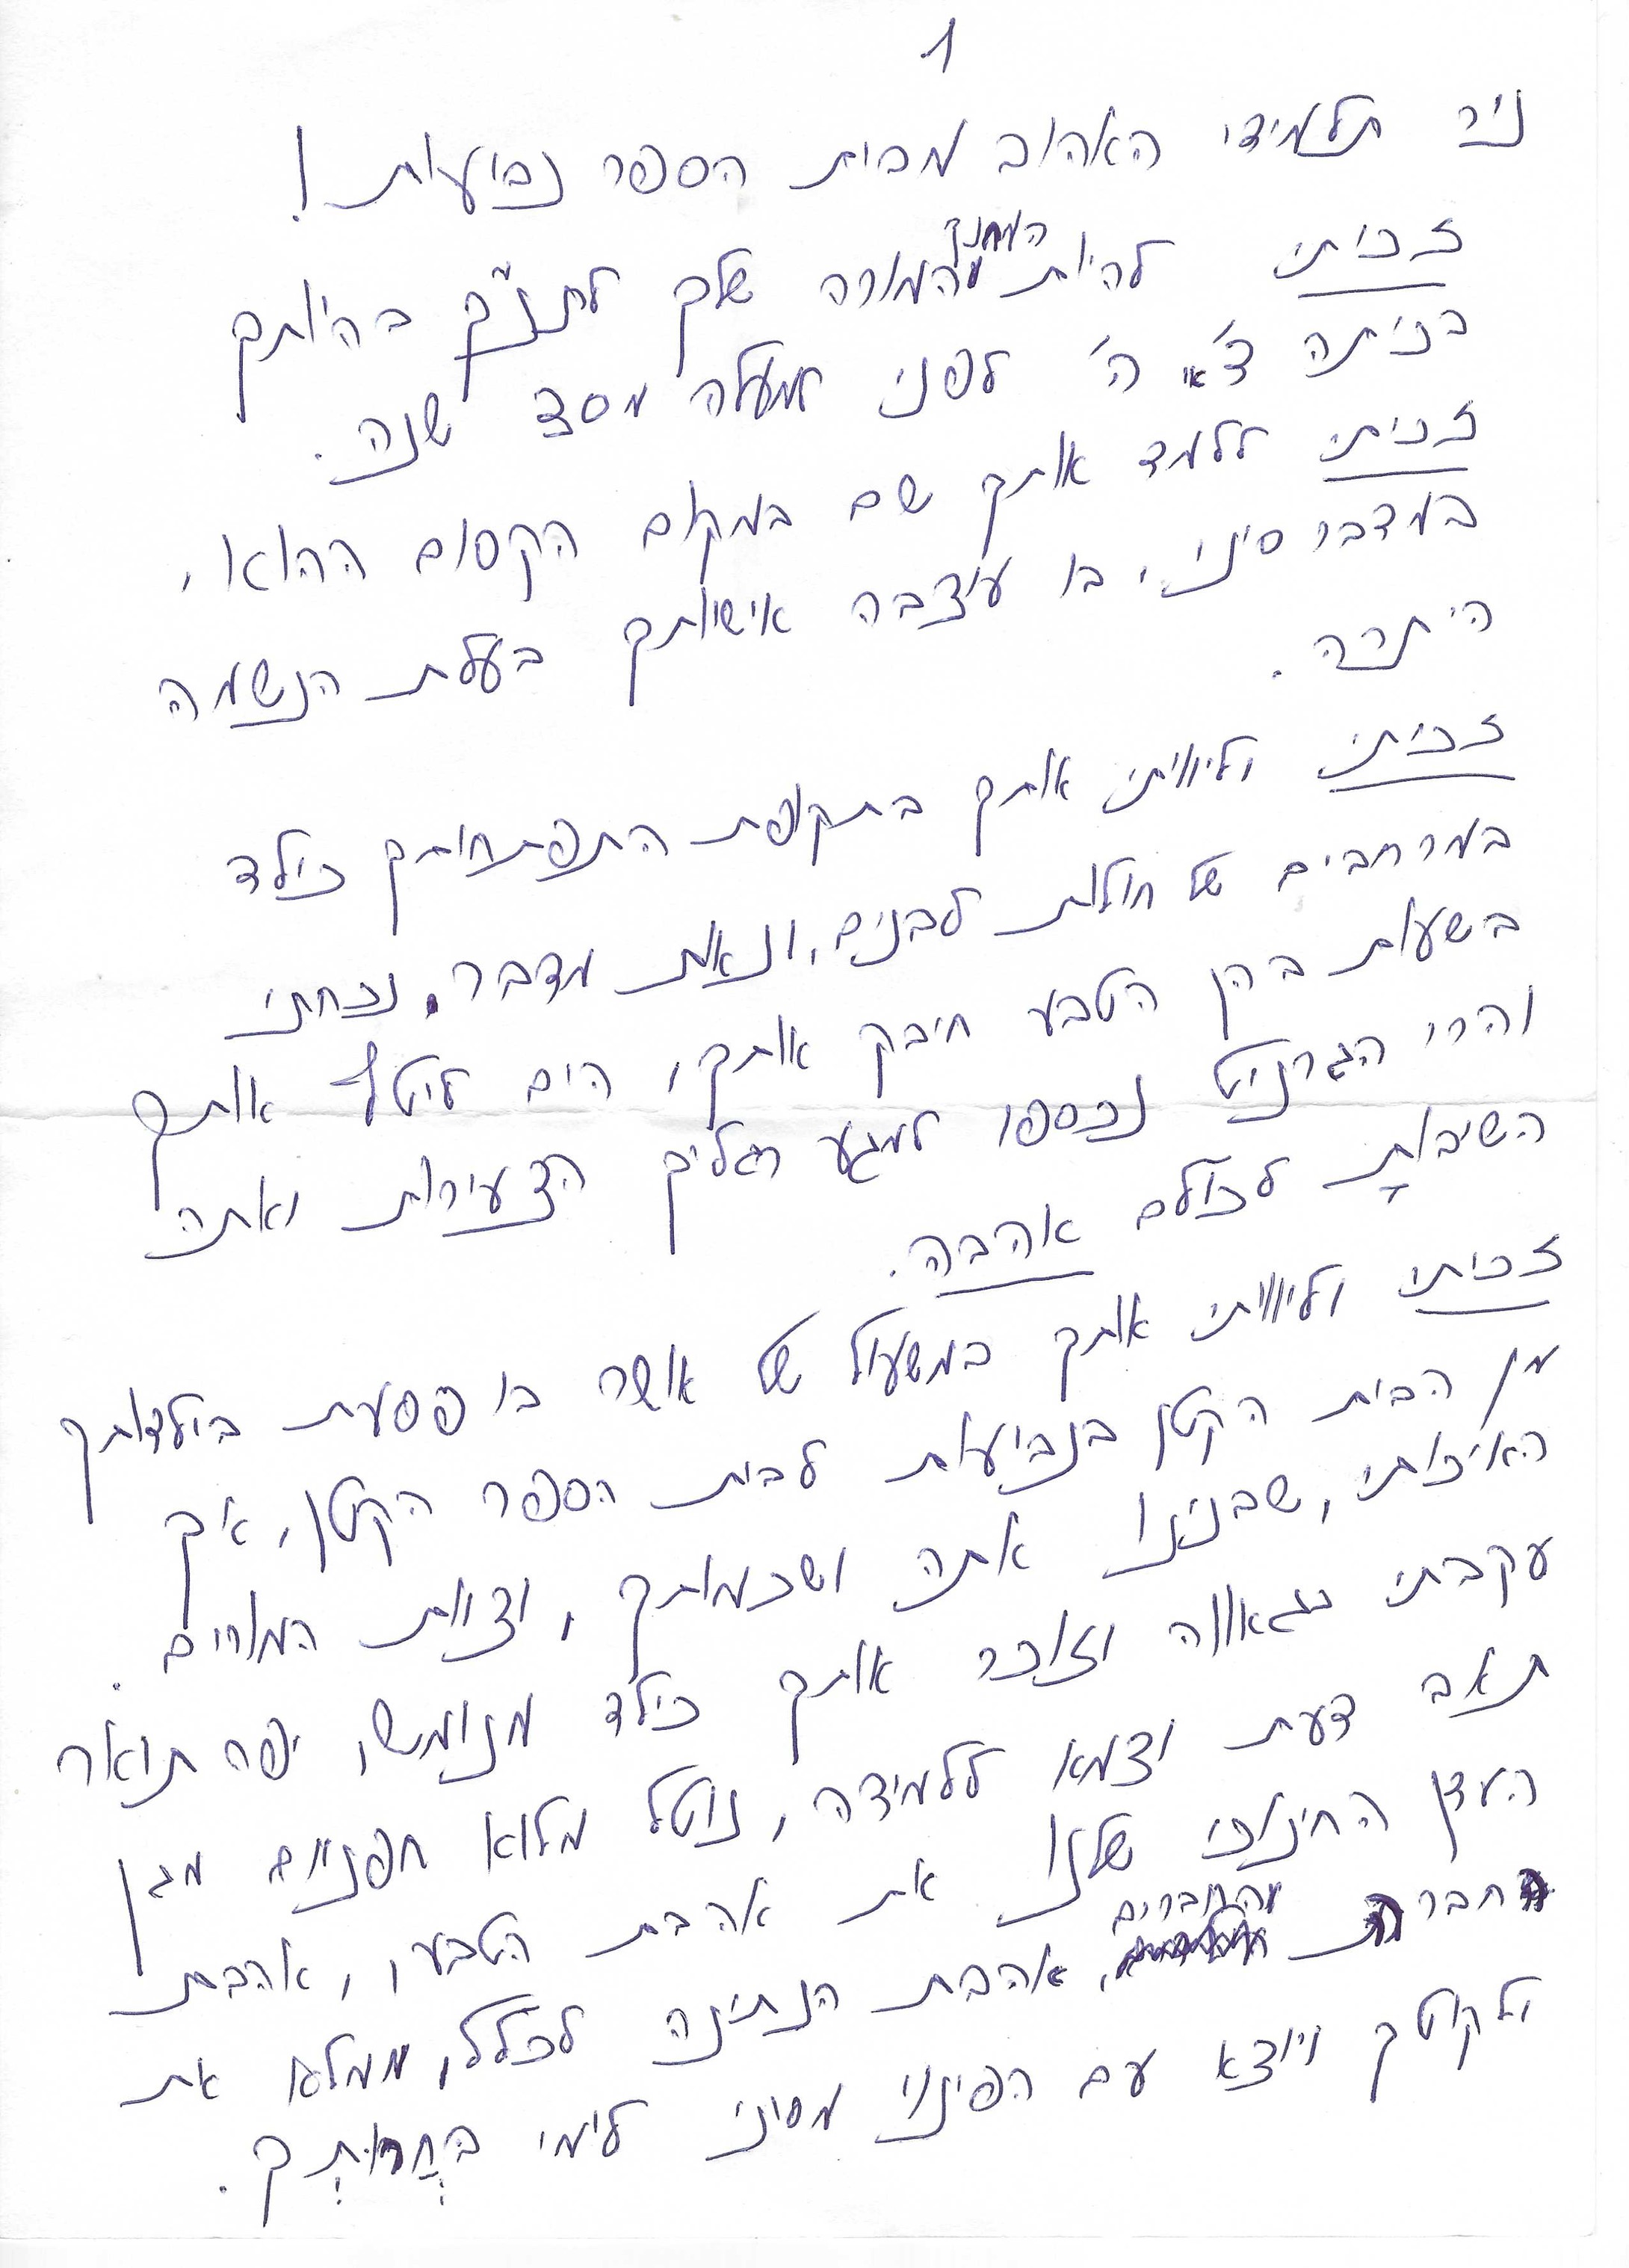 1
ניר תלמידי האהוב מבית הספר נביעות!
זכיתי להיות המחנך והמורה שלך לתנ"ך בהיותך
בכיתה ד' או ה' לפני למעלה מ שנה.
זכיתי ללמד אותך שם במקום הקסום ההוא,
במדבר סיני, בו עוצבה אישיותך בעלת הנשמה
היתרה.
זכיתי וליוויתי אותך בתקופת התפתחותך כילד
במרחבים של חולות לבנים, ונאות מדבר. נכחתי
בשעות בהן הטבע חיבק אותך, הים ליטף אותך
והרי הגרניט נכספו למגע רגליך הצעירות ואתה
השיבותָ לכולם אהבה.
זכיתי וליוויתי אותך במשעול של אושר בו פסעת בילדותך
מן הבית הקטן בנביעות לבית הספר הקטן, אך
האיכותי, שבנינו אתה ושכמותך, וצוות המורים.
עקבתי בגאווה וזוכר אותך כילד מנומש, יפה תואר
תאב דעת וצמא ללמידה, נוטל מלוא חפניים מגן
העדן החינוכי שלנו את אהבת הטבע, אהבת
חברת החברים, אהבת הנתינה לכלל, ממלא את
ילקוטך ויוצא עם הפינוי מסיני לימי בַּחֲרוּתְךָ.